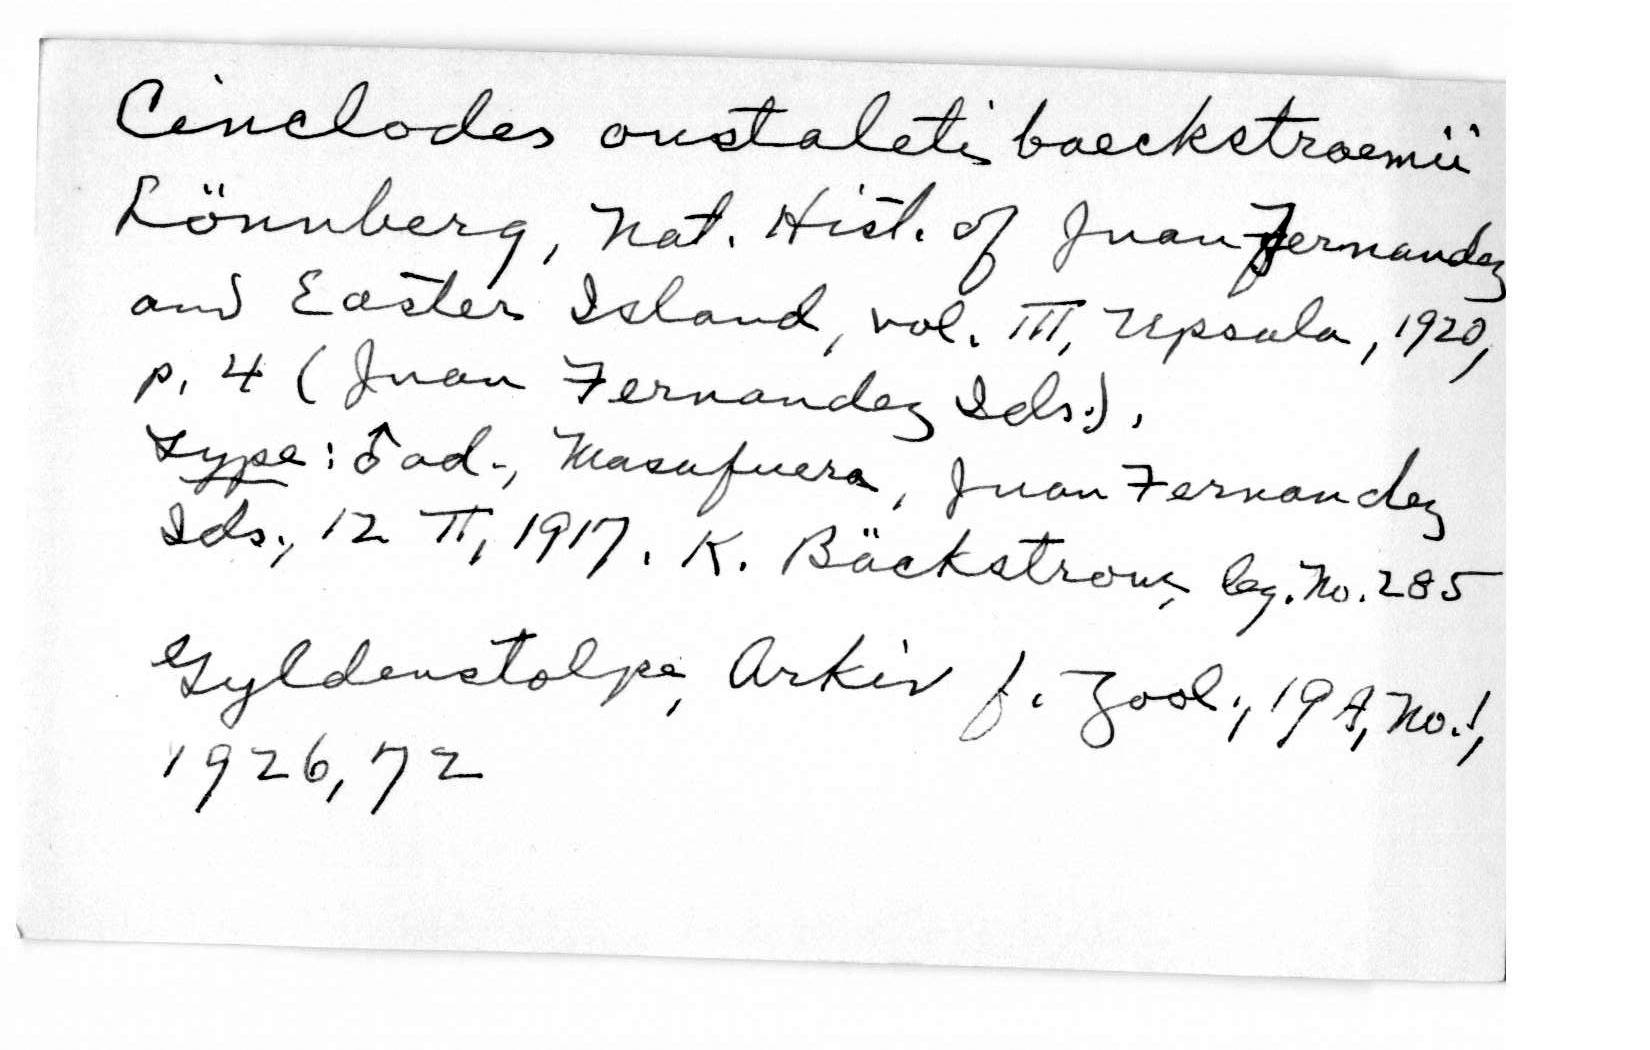 Cinclodes oustaleti baeckstroemii
Lönnberg, Nat. Hist. of Juan Fernandez
and Easter Island, vol. III, Upsala, 1920,
p. 4 (Juan Fernandez Ids.).
Type: ♂ ad., Masafuera, Juan Fernandez
Ids., 12 II, 1917. K. Bäckstrom, leg. No. 285
Gyldenstolpe, Arkiv f. Zool., 19A, No. 1,
1926, 72